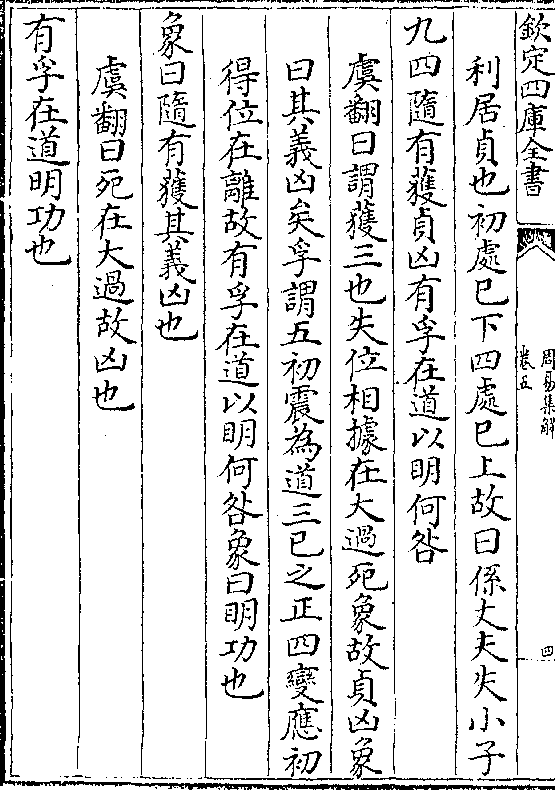 欽定四庫全書
周易集解
卷五
四
利居貞也初處已下四處已上故曰係丈夫失小子
九四隨有獲貞凶有孚在道以明何咎
虞翻曰謂獲三也失位相據在大過死象故貞凶象
曰其義凶矣孚謂五初震為道三已之正四變應初
得位在離故有孚在道以明何咎象曰明功也
象曰隨有獲其義凶也
虞翻曰死在大過故凶也
有孚在道明功也